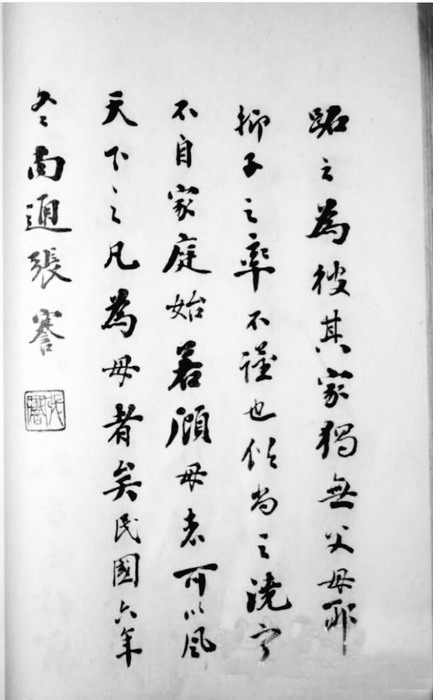 跖之為彼其家獨無父母耶
抑子之率不謹也俗尚之澆寧
不自家庭始若顧母者可以風
天下之凡為母者矣民國六年
冬南通張謇
張謇